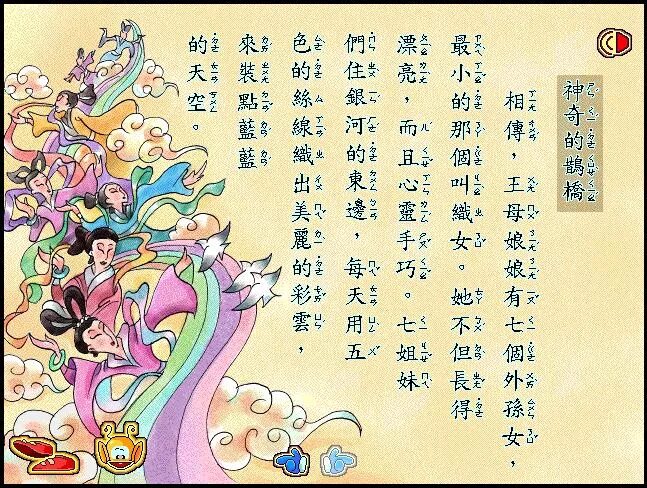 神奇的鵲橋
相傳，王母娘娘有七個外孫女，
最小的那個叫織女。她不但長得
漂亮，而且心靈手巧。七姐妹
們住銀河的東邊，每天用五
色的絲線織出美麗的彩雲，
來裝點藍藍
的天空。